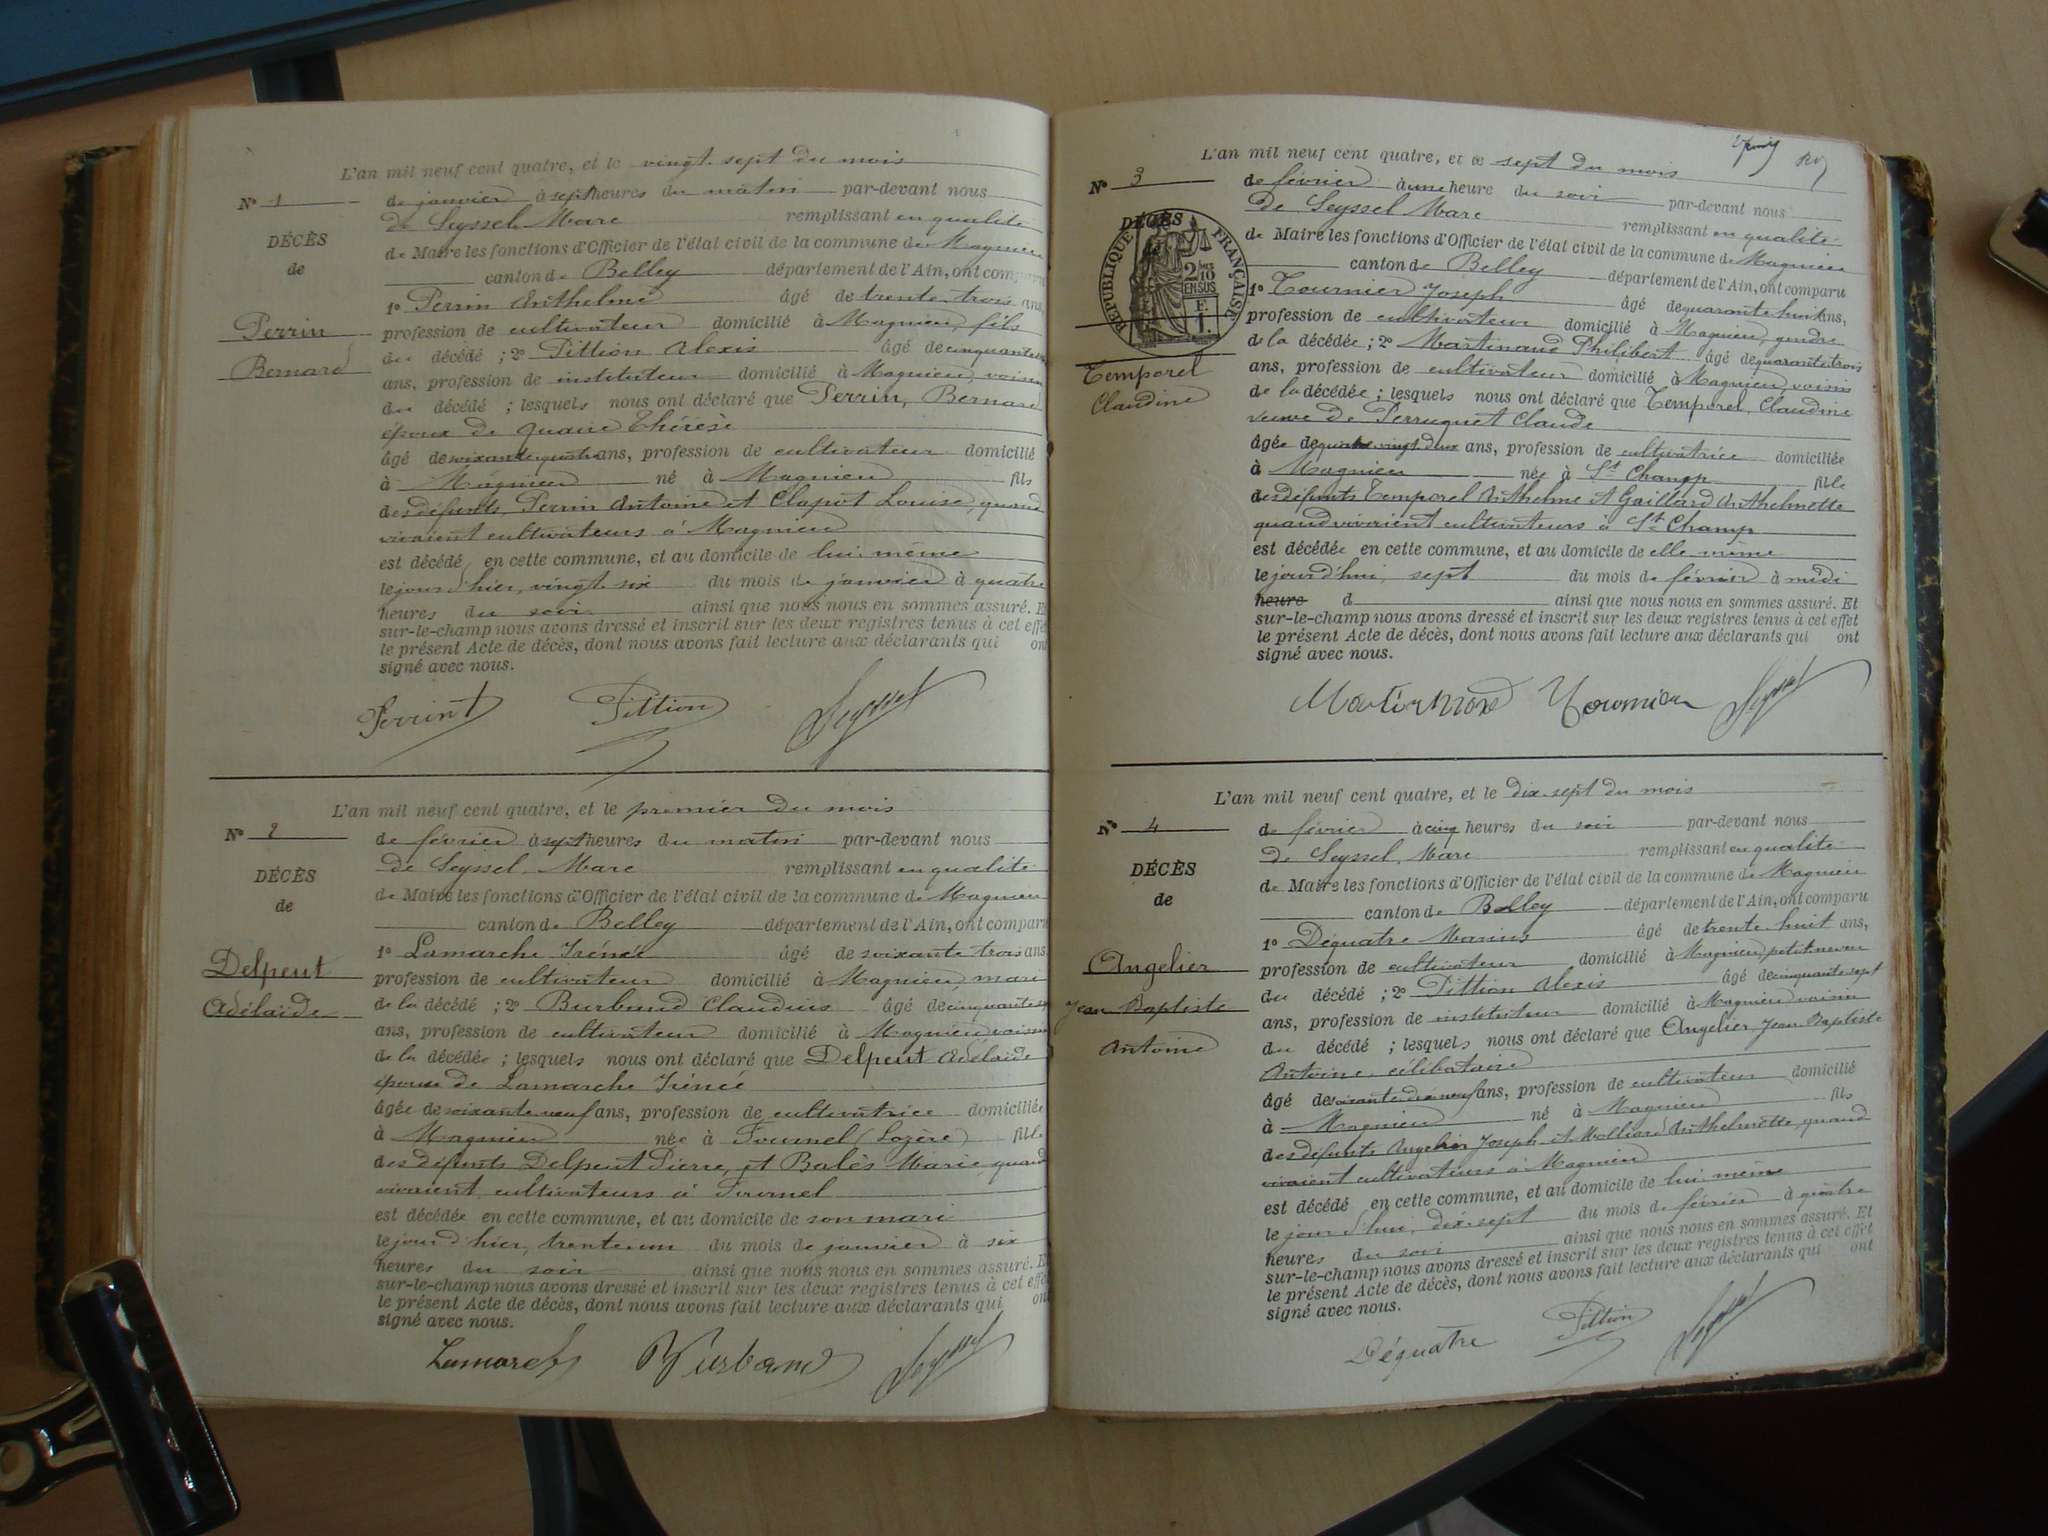 L'an mil neuf cent quatre, et le vingt sept du mois
N° 1
de janvier à sept heures du matin par-devant nous
de Seyssel Marc remplissant en qualité
DÉCÈS
de Maire les fonctions d'Officier de l'état civil de la commune de Magnieu
de
canton de Belley département de l'Ain, ont comparu
1° Perrin Anthelme âgé de trente trois ans,
Perrin
profession de cultivateur domicilié à Magnieu, fils
du décédé ; 2° Pittion Alexis âgé de cinquante
Bernard
ans, profession de instituteur domicilié à Magnieu, voisin
du décédé ; lesquels nous ont déclaré que Perrin, Bernard
époux de Thérèse
âgé de soixante quatre ans, profession de cultivateur domicilié
à Magnieu né à Magnieu fils
des défunts Perrin Antoine et Clapot Louise, quand
vivaient cultivateurs à Magnieu
est décédé en cette commune, et au domicile de lui même
le jour d'hier, vingt six du mois de janvier à quatre
heures du soir ainsi que nous nous en sommes assuré. Et
sur-le-champ nous avons dressé et inscrit sur les deux registres tenus à cet effet
le présent Acte de décès, dont nous avons fait lecture aux déclarants qui ont
signé avec nous.
Perrin Pittion Seyssel
L'an mil neuf cent quatre, et le premier du mois
N° 2
de février à sept heures du matin par-devant nous
de Seyssel, Marc remplissant en qualité
DÉCÈS
de Maire les fonctions d'Officier de l'état civil de la commune de Magnieu
de
canton de Belley département de l'Ain, ont comparu
1° Lamarche Irénée âgé de soixante trois ans,
Delpeut
profession de cultivateur domicilié à Magnieu, mari
Adélaïde
de la décédée ; 2° Burbend Claudius âgé de cinquante
ans, profession de cultivateur domicilié à Magnieu, voisin
de la décédée ; lesquels nous ont déclaré que Delpeut Adélaïde
épouse de Lamarche Irénée
âgée de soixante neuf ans, profession de cultivatrice domiciliée
à Magnieu née à Fournel (Lozère) fille
des défunts Delpeut Pierre, et Balès Marie quand
vivaient cultivateurs à Fournel
est décédée en cette commune, et au domicile de son mari
le jour d'hier, trente un du mois de janvier à six
heures du soir ainsi que nous nous en sommes assuré. Et
sur-le-champ nous avons dressé et inscrit sur les deux registres tenus à cet effet
le présent Acte de décès, dont nous avons fait lecture aux déclarants qui ont
signé avec nous.
Lamarche Burband Seyssel
L'an mil neuf cent quatre, et le sept du mois
N° 3
de février à une heure du soir par-devant nous
de Seyssel Marc remplissant en qualité
DÉCÈS
de
RÉPUBLIQUE FRANÇAISE
2/10 EN SUS
F. 1.
de Maire les fonctions d'Officier de l'état civil de la commune de Magnieu
canton de Belley département de l'Ain, ont comparu
1° Tournier Joseph âgé de quarante huit ans,
profession de cultivateur domicilié à Magnieu, gendre
de la décédée ; 2° Martinand Philibert âgé de quarante trois
Temporel
ans, profession de cultivateur domicilié à Magnieu voisin
Claudine
de la décédée ; lesquels nous ont déclaré que Temporel, Claudine
veuve de Perruquet Claude
âgée de quatre vingt deux ans, profession de cultivatrice domiciliée
à Magnieu née à St Champ fille
des défunts Temporel Anthelme et Gaillard Anthelmette
quand vivaient cultivateurs à St Champ
est décédée en cette commune, et au domicile de elle même
le jour d'hui, sept du mois de février à midi
heure d ainsi que nous nous en sommes assuré. Et
sur-le-champ nous avons dressé et inscrit sur les deux registres tenus à cet effet
le présent Acte de décès, dont nous avons fait lecture aux déclarants qui ont
signé avec nous.
Martinand Tournier Seyssel
L'an mil neuf cent quatre, et le dix sept du mois
N° 4
de février à cinq heures du soir par-devant nous
de Seyssel, Marc remplissant en qualité
DÉCÈS
de Maire les fonctions d'Officier de l'état civil de la commune de Magnieu
de
canton de Belley département de l'Ain, ont comparu
1° Déquatre Marius âgé de trente huit ans,
Angelier
profession de cultivateur domicilié à Magnieu, petit neveu
du décédé ; 2° Pittion Alexis âgé de cinquante sept
Jean Baptiste
ans, profession de instituteur domicilié à Magnieu voisin
Antoine
du décédé ; lesquels nous ont déclaré que Angelier Jean Baptiste
Antoine, célibataire
âgé de soixante dix neuf ans, profession de cultivateur domicilié
à Magnieu né à Magnieu fils
des défunts Angelier Joseph et Molliard Anthelmette, quand
vivaient cultivateurs à Magnieu
est décédé en cette commune, et au domicile de lui même
le jour d'hui, dix sept du mois de février à quatre
heures du soir ainsi que nous nous en sommes assuré. Et
sur-le-champ nous avons dressé et inscrit sur les deux registres tenus à cet effet
le présent Acte de décès, dont nous avons fait lecture aux déclarants qui ont
signé avec nous.
Déquatre Pittion Seyssel